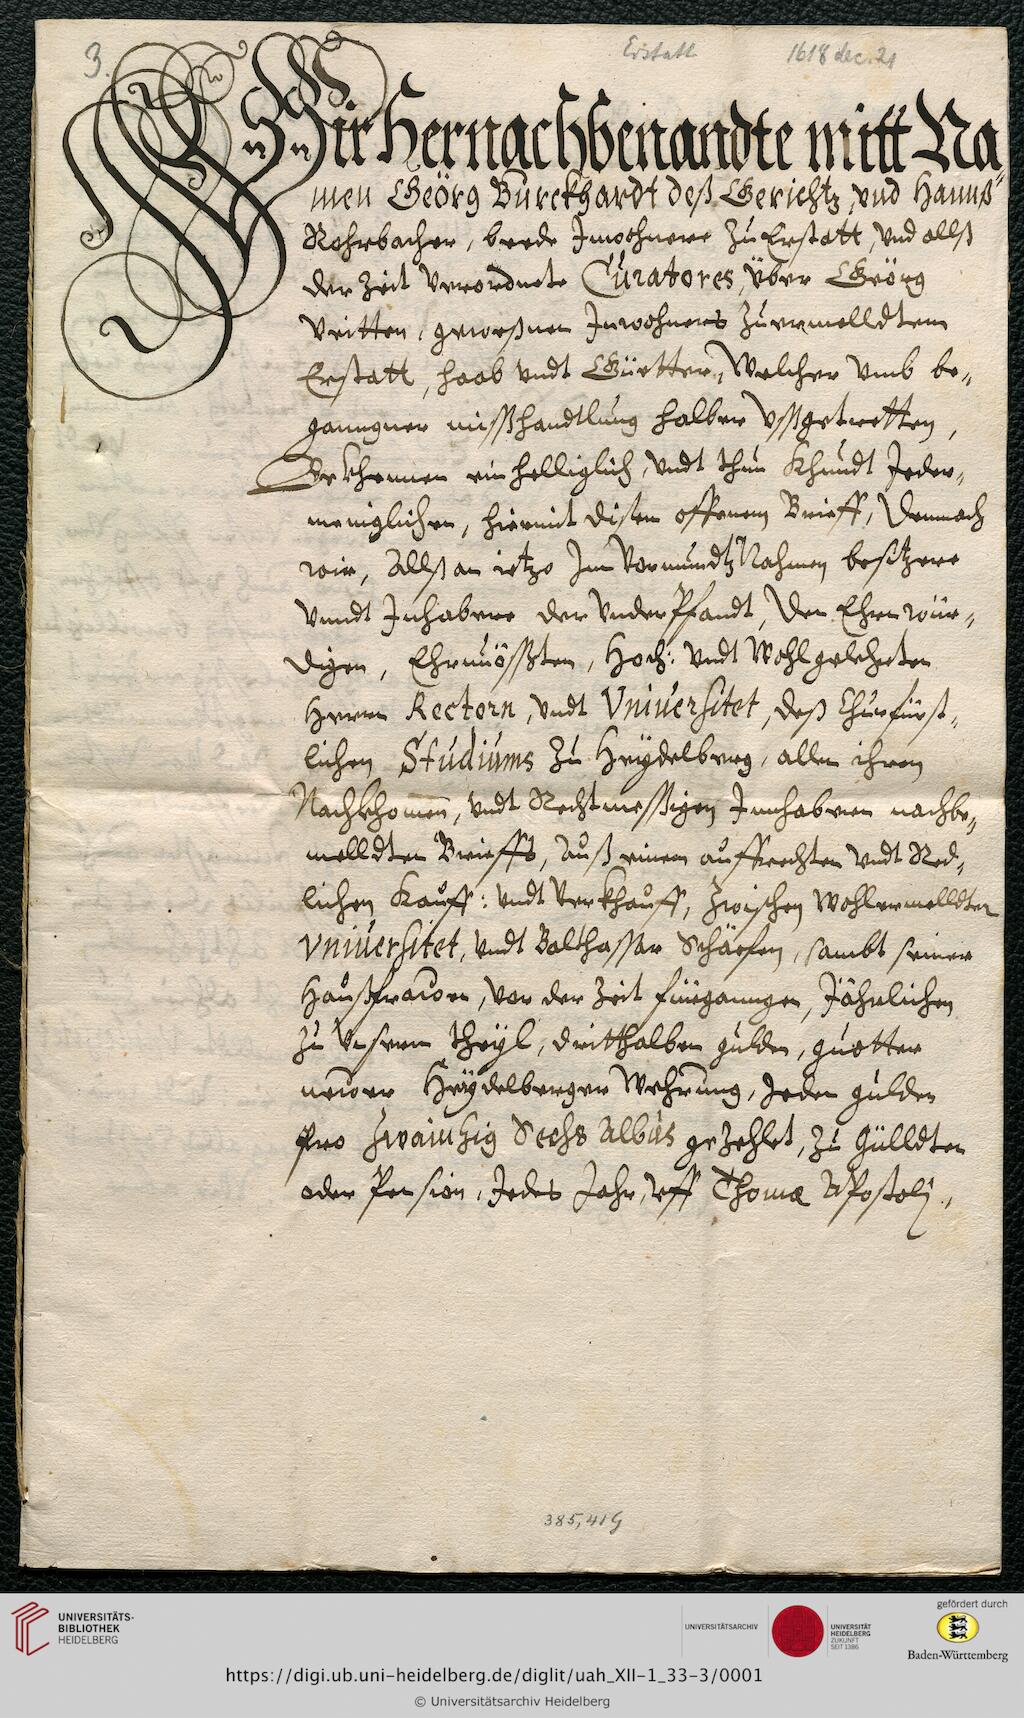 3.
Erstatt 1618 dec. 21
Wir Hernachbenandte mitt Na
men Geörg Burckhardt deß Gerichtz, vnd Hannß
Rohrbacher, beede Inwohnere zu Erstatt, vnd allß
der Zeit verordnete Curatores, über Geörg
Veitten, geweßnen Inwohners zu ermelldtem
Erstatt, haab vndt Güetter, Welcher vmb be„
gangner mißhandtlung halber vßgetretten,
Bekhennen einhelliglich, vndt thun Khundt Jeder„
meniglichen, hiermit disem offenem Brieff, Demnach
wir, Allß an ietzo Im Vormundtz Nahmen besitzere
vnndt Inhabere der Vnder Pfandt, Den Ehrenwür„
digen, Ehrnvößten, Hoch: vndt Wohlgelehrten
Herrn Rectorn, vndt Vniuersitet, deß Churfürst„
lichen Studiums zu Heydelberg, allen ihren
Nachkhomen, vndt Rechtmessigen Innhabern nachbe„
melldten Brieffs, Auß einem auffrechten vndt Red„
lichen Kauff: vndt Verkhauff, Zwischen Wohlermelldter
Vniuersitet, vndt Balthassar Schäefen, sambt seiner
Haußfrawen, vor der Zeit fürgangen, Jährlichen
zu Vnserm theyl, dritthalben gulden, guetter
newer Heydelberger Wehrung, Jeden gulden
pro Zwaintzig Sechs Albus gezehlet, zu Gülldten
oder Pension, Jedes Jahr, vff Thomæ Apostolj.,
385,41G
UNIVERSITÄTS-
BIBLIOTHEK
HEIDELBERG
UNIVERSITÄTSARCHIV
UNIVERSITÄT
HEIDELBERG
ZUKUNFT
SEIT 1386
gefördert durch
Baden-Württemberg
https://digi.ub.uni-heidelberg.de/diglit/uah_XII-1_33-3/0001
© Universitätsarchiv Heidelberg